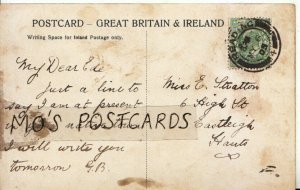 POSTCARD – GREAT BRITAIN & IRELAND
Writing Space for Inland Postage only.
My Dear Ede
Just a line to
say I am at present
in
I will write you
tomorrow G.B.
Miss E. Stratton
6 High St
Eastleigh
Hants
MO'S POSTCARDS